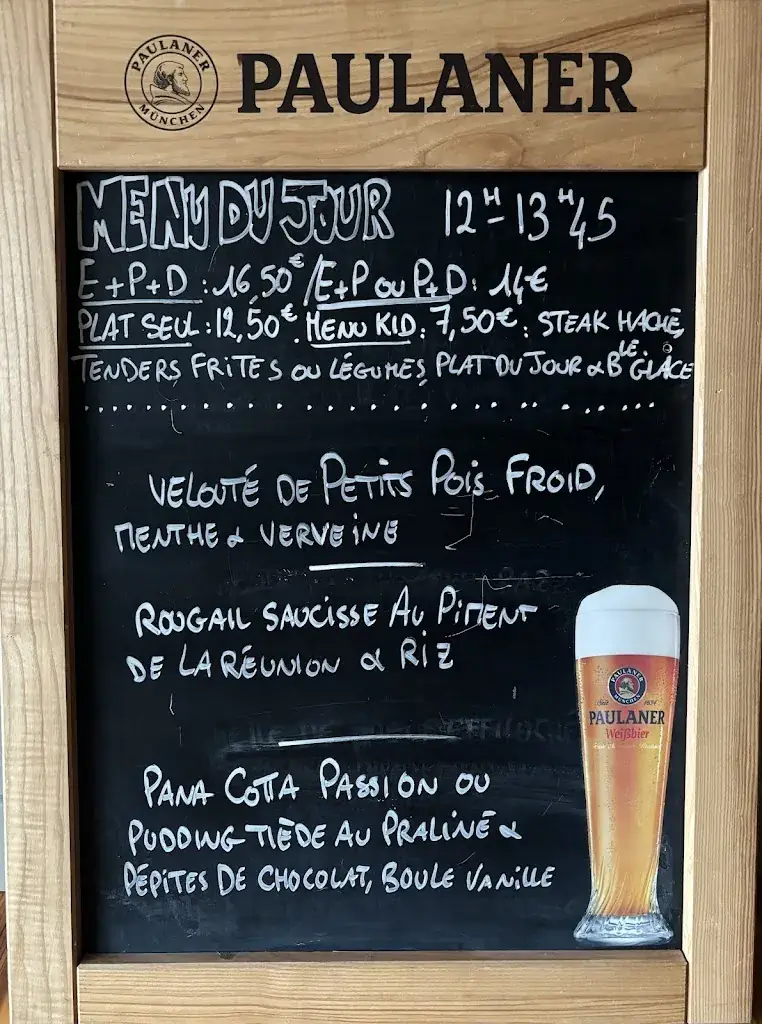 PAULANER
MÜNCHEN
PAULANER
MENU DU JOUR 12H-13H45
E+P+D : 16,50€ / E+P OU P+D : 14€
PLAT SEUL : 12,50€. MENU KID : 7,50€ : STEAK HACHÉ,
TENDERS FRITES OU LÉGUMES, PLAT DU JOUR & BLE GLACE
VELOUTÉ DE PETITS POIS FROID,
MENTHE & VERVEINE
ROUGAIL SAUCISSE AU PIMENT
DE LA RÉUNION & RIZ
PANA COTTA PASSION OU
PUDDING TIÈDE AU PRALINÉ &
PÉPITES DE CHOCOLAT, BOULE VANILLE
PAULANER
MÜNCHEN
Seit 1634
PAULANER
Weißbier